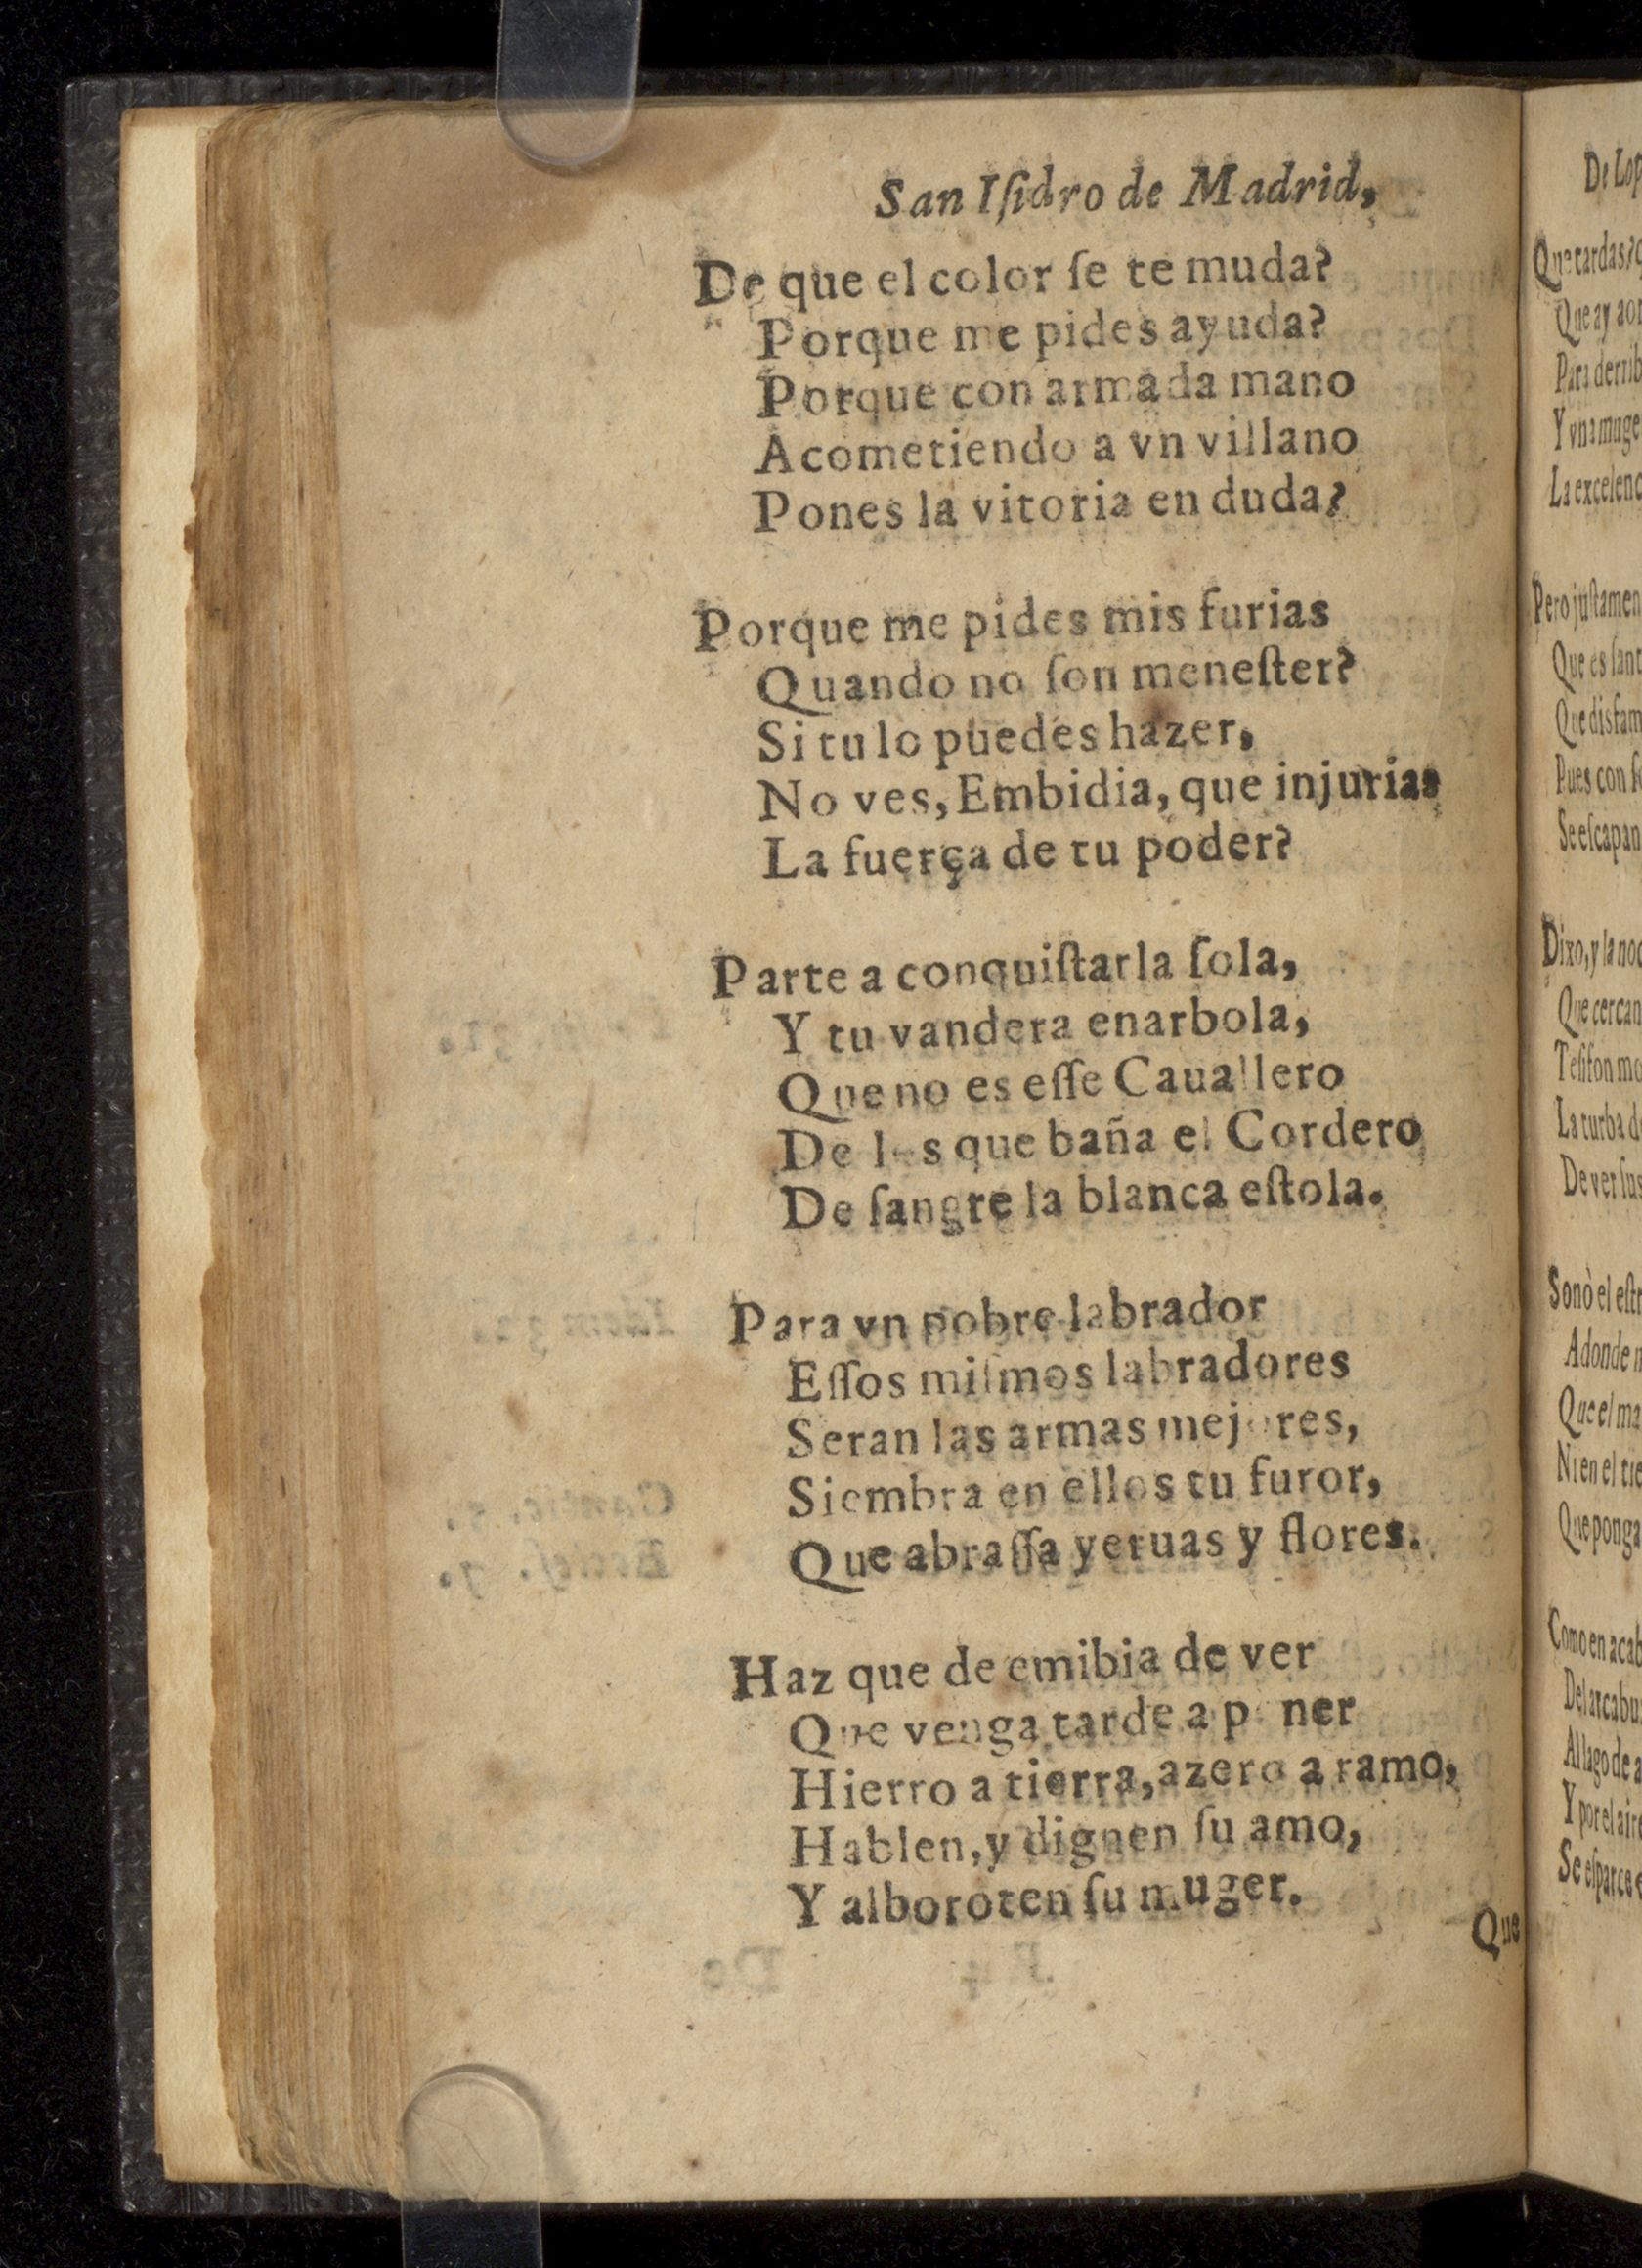 San Iſidro de Madrid,
De que el color ſe te muda?
Porque me pides ayuda?
Porque con armada mano
Acometiendo a vn villano
Pones la vitoria en duda?
Porque me pides mis furias
Quando no ſon meneſter?
Si tu lo puedes hazer,
No ves, Embidia, que injurias
La fuerça de tu poder?
Parte a conquiſtarla ſola,
Y tu vandera enarbola,
Que no es eſſe Cauallero
De los que baña el Cordero
De ſangre la blanca eſtola.
Para vn pobre labrador
Eſſos miſmos labradores
Seran las armas mejores,
Siembra en ellos tu furor,
Que abraſſa yeruas y flores.
Haz que de emibia de ver
Que venga tarde a poner
Hierro a tierra, azero a ramo,
Hablen, y dignen ſu amo,
Y alboroten ſu muger.
Que
De Lop
Que tardas?
Que ay
Para derrib
Y vna muge
La excelenc
Pero juſtamen
Que es ſant
Que disfam
Pues con
Se eſcapan
Dixo, y la noc
Que cercan
Teſifon
La turba d
De ver ſus
Sonò el eſtr
Adonde
Que el ma
Ni en el
Que ponga
Como en acab
Del arcabu
Al lago de a
Y por el aire
Se eſparce